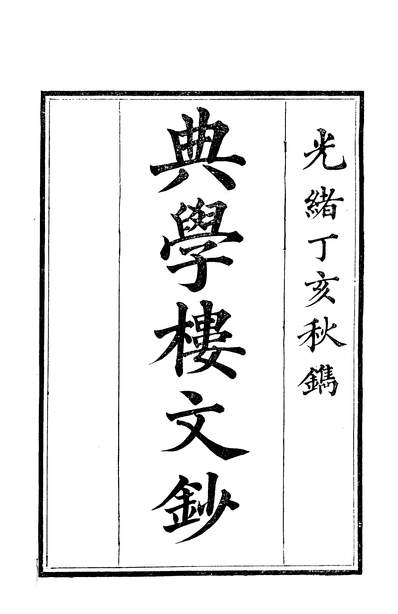 光緒丁亥秋鐫
典學樓文鈔